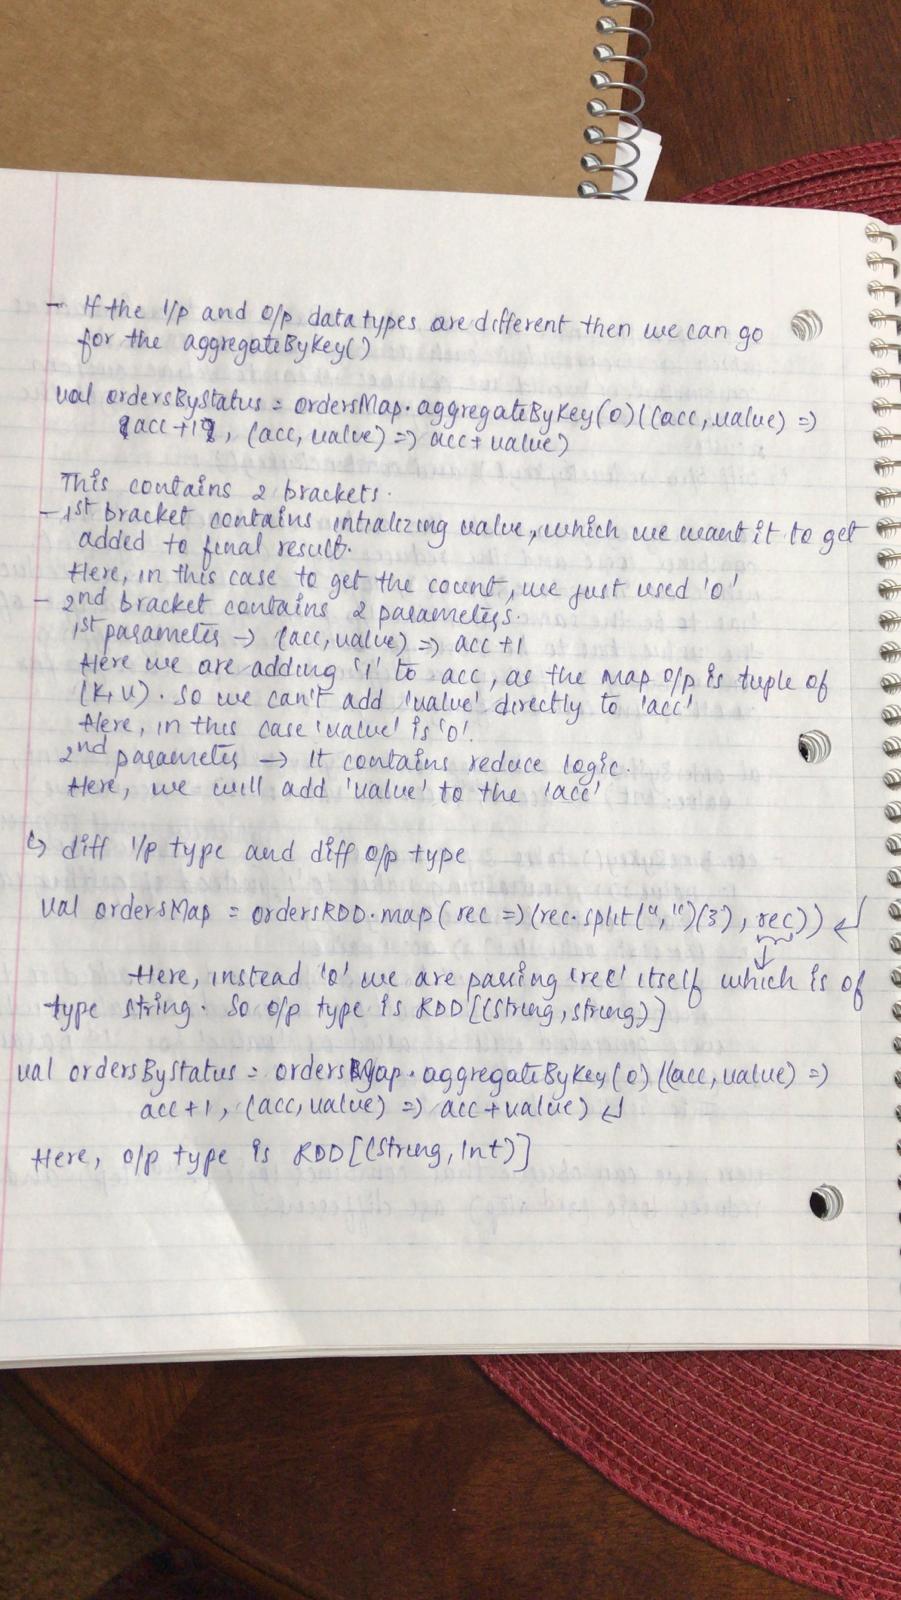 - If the i/p and o/p data types are different then we can go
for the aggregateByKey()
val ordersByStatus = ordersMap.aggregateByKey(0)((acc, value) =>
acc+1, (acc, value) => acc+value)
This contains 2 brackets.
- 1st bracket contains intializing value, which we want it to get
added to final result.
Here, in this case to get the count, we just used '0'
- 2nd bracket contains 2 parameters.
1st parameter -> (acc, value) => acc+1
Here we are adding '1' to acc, as the map o/p is tuple of
(K,V). So we can't add 'value' directly to 'acc'
Here, in this case 'value' is '0'.
2nd parameter -> It contains reduce logic.
Here, we will add 'value' to the 'acc'
↳ diff i/p type and diff o/p type
val ordersMap = ordersRDD.map(rec => (rec.split(",")(3), rec)) ↵
Here, instead '0' we are passing 'rec' itself which is of
type string. So o/p type is RDD[(String, String)]
val ordersByStatus = ordersMap.aggregateByKey(0)((acc, value) =>
acc+1, (acc, value) => acc+value) ↵
Here, o/p type is RDD[(String, Int)]